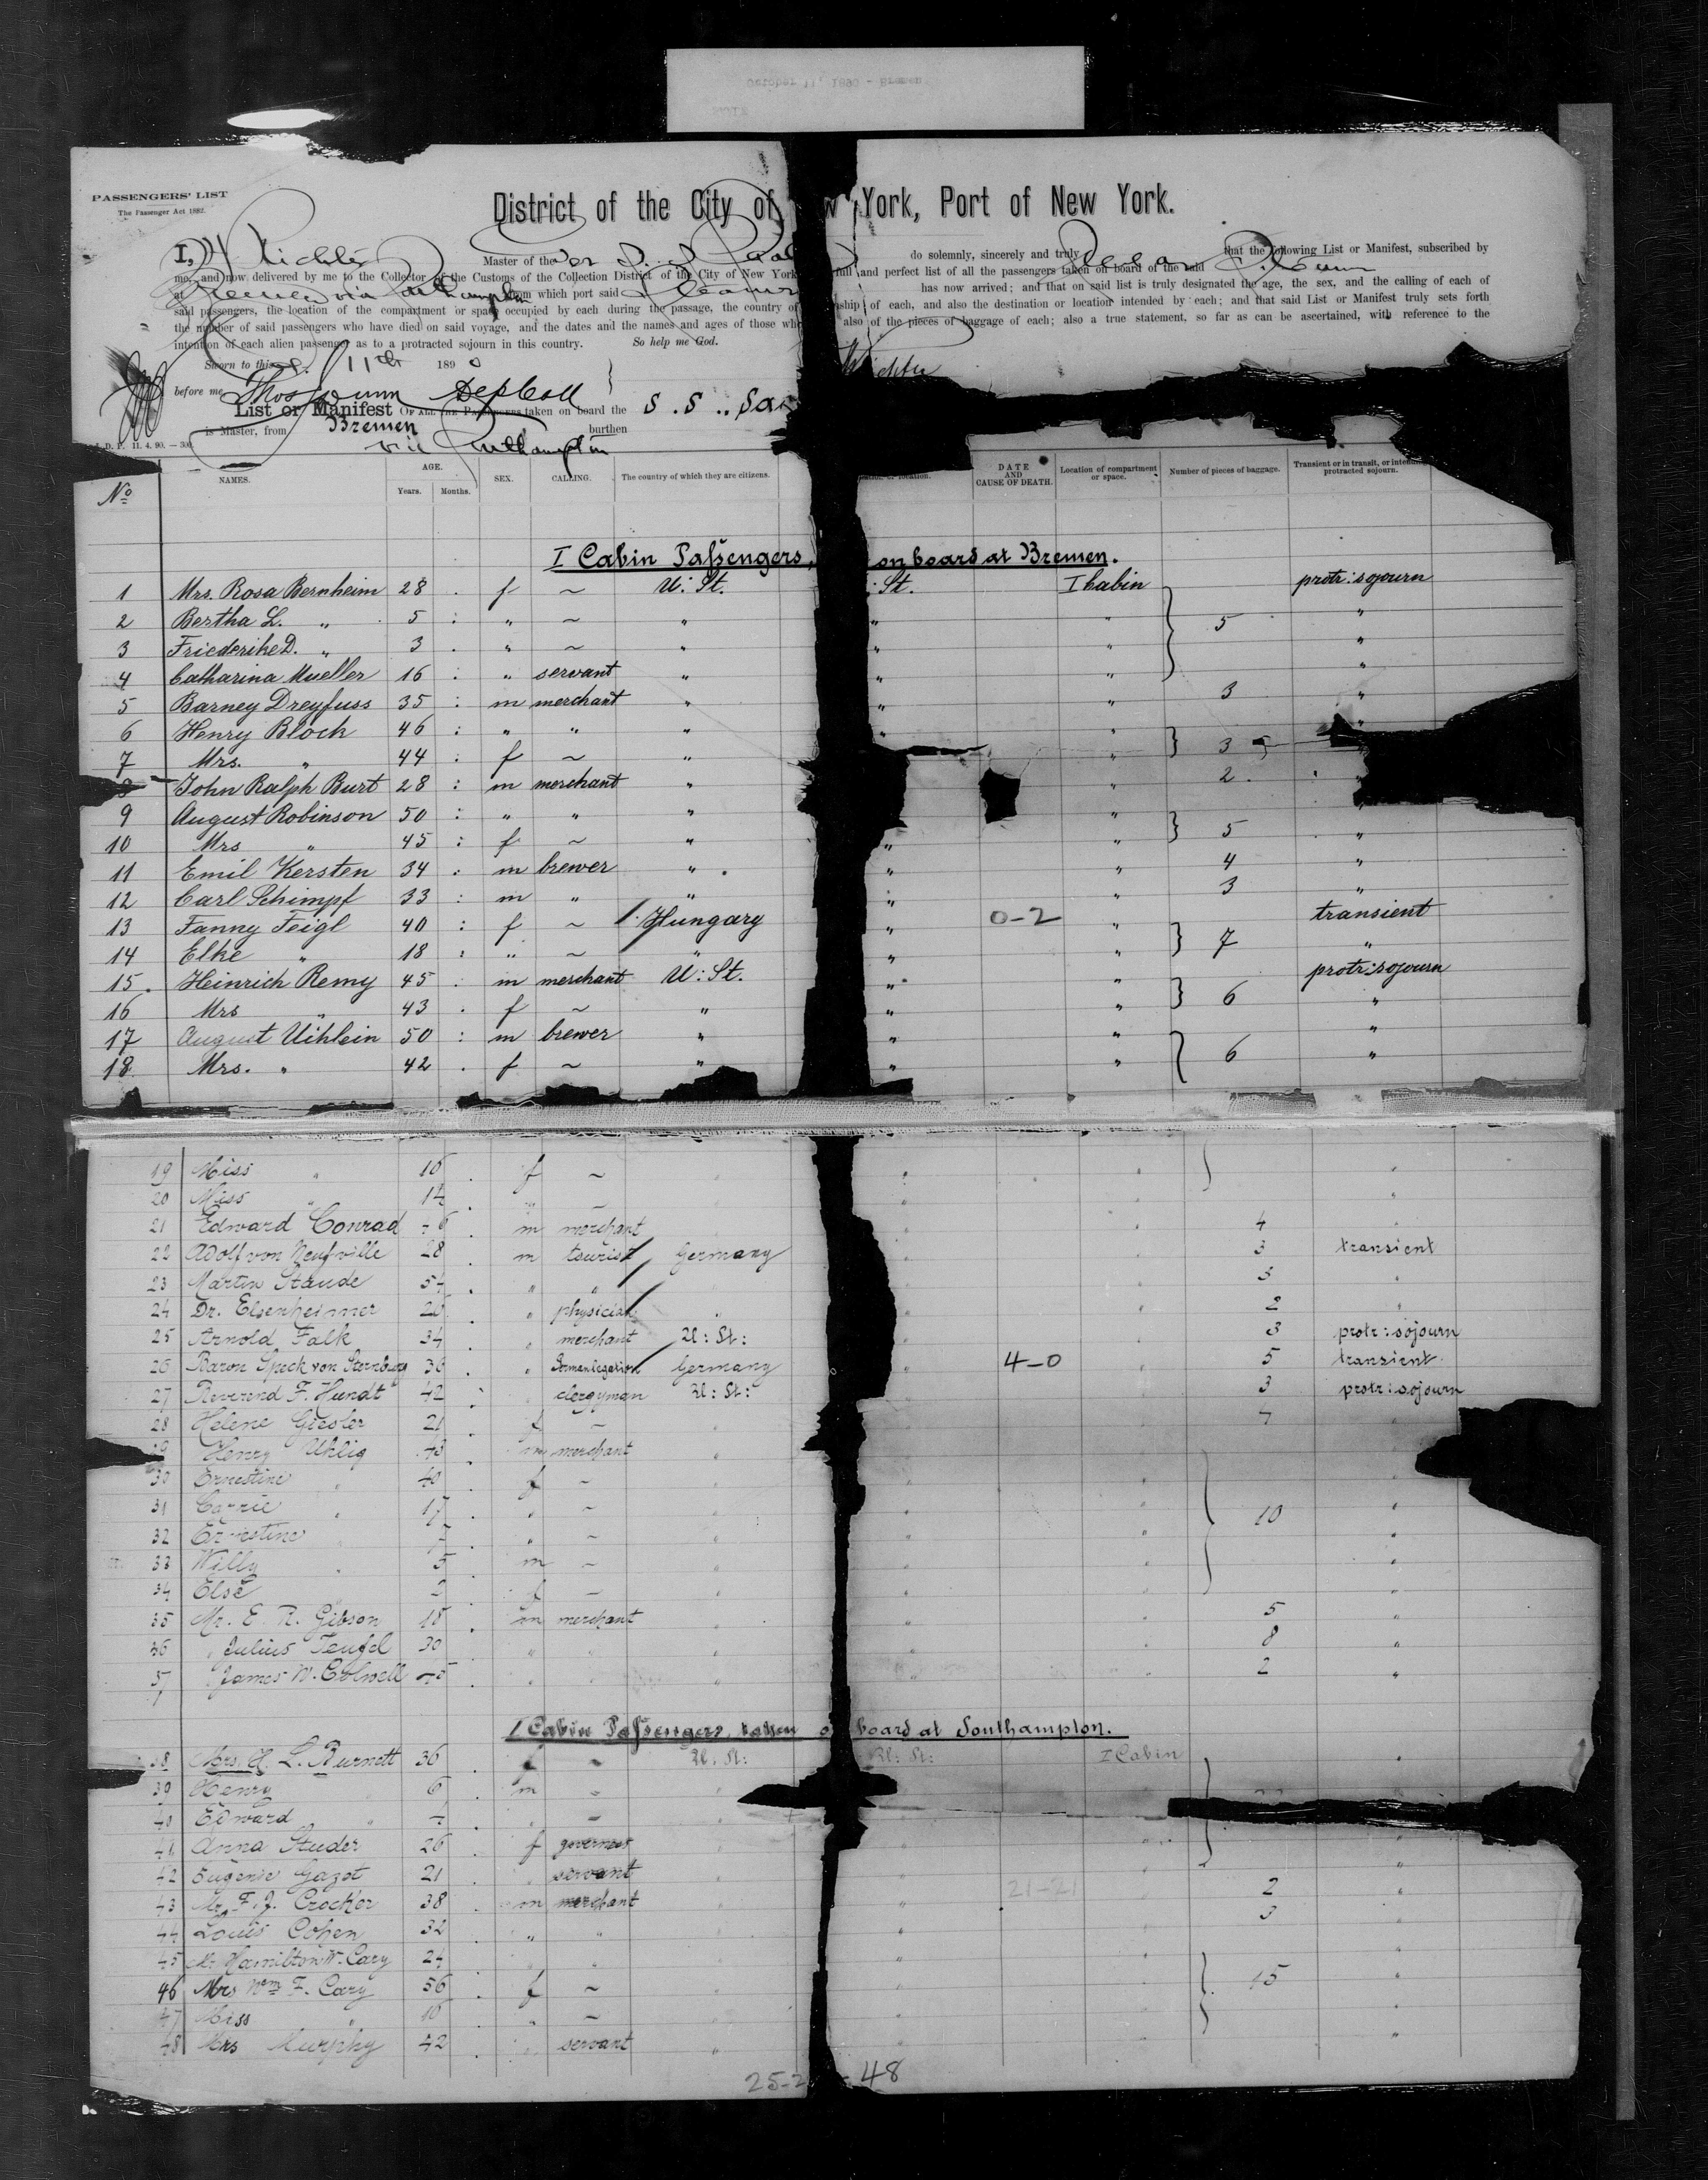 October 11, 1890 - Bremen
PASSENGERS' LIST
The Passenger Act 1882.
District of the City of w York, Port of New York.
I, Richter Master of the do solemnly, sincerely and truly that the following List or Manifest, subscribed by
me, and now delivered by me to the Collector of the Customs of the Collection District of the City of New York full and perfect list of all the passengers taken on board of the said
at Bremen via Southampton from which port said Steamer has now arrived; and that on said list is truly designated the age, the sex, and the calling of each of
said passengers, the location of the compartment or space occupied by each during the passage, the country of nship of each, and also the destination or location intended by each; and that said List or Manifest truly sets forth
the number of said passengers who have died on said voyage, and the dates and the names and ages of those who also of the pieces of baggage of each; also a true statement, so far as can be ascertained, with reference to the
intention of each alien passenger as to a protracted sojourn in this country. So help me God.
Sworn to this 11th 1890
before me Thos Dunn Dep Coll
List or Manifest OF ALL THE PASSENGERS taken on board the S.S. Saa
is Master, from Bremen burthen
via Southampton
11. 4. 90. — 300
No NAMES. AGE. Years. Months. SEX. CALLING. The country of which they are citizens. location. DATE AND CAUSE OF DEATH. Location of compartment or space. Number of pieces of baggage. Transient or in transit, or inten protracted sojourn.
I Cabin Passengers, on board at Bremen.
1 Mrs. Rosa Bernheim 28 f ~ U: St. : St. I Cabin protr: sojourn
2 Bertha L. " 5 : " ~ " " " 5 "
3 Friederike D. " 3 . " ~ " " " "
4 Catharina Mueller 16 : " servant " " " "
5 Barney Dreyfuss 35 : m merchant " " " 3 "
6 Henry Bloch 46 : " " " " " "
7 Mrs. " 44 : f ~ " " 3
8 John Ralph Burt 28 : m merchant " " 2 "
9 August Robinson 50 : " " " "
10 Mrs " 45 : f ~ " " " 5 "
11 Emil Kersten 34 : m brewer " " " 4 "
12 Carl Schimpf 33 : m " " " " 3 "
13 Fanny Feigl 40 : f ~ Hungary " 0-2 " transient
14 Elke " 18 : " ~ " " " 7 "
15. Heinrich Remy 45 : m merchant U: St. " " protr: sojourn
16 Mrs " 43 . f ~ " " " 6 "
17 August Uihlein 50 : m brewer " " " "
18 Mrs. " 42 . f ~ " " " 6 "
19 Miss " 16 . f ~ " " " "
20 Miss " 14 . " ~ " " "
21 Edward Conrad m merchant " " 4 "
22 Adolf von Neufville 28 . m tourist Germany " " 3 transient
23 Martin Staude 54 . " " " " 3 "
24 Dr. Elsenheimer 26 . " physician " " 2 "
25 Arnold Falk 34 . " merchant U: St: " " 3 protr: sojourn
26 Baron Speck von Sternburg 36 . " German legation Germany " 4-0 " 5 transient
27 Reverend F. Hundt 42 : " clergyman U: St: " 3 protr: sojourn
28 Helene Giesler 21 f ~ " 7 "
29 Henry Uhlig 43 . m merchant "
30 Ernestine " 40 . f ~ " " "
31 Carrie " 17 . " ~ " " 10 "
32 Ernestine " . " ~ " " "
33 Willy " 5 . m ~ " " "
34 Else . f ~ " " "
35 Mr. E. R. Gibson 18 . m merchant " " 5 "
36 " Julius Teufel 30 " " " " 8 "
37 " James W. Colwell " " " " 2 "
I Cabin Passengers, taken o board at Southampton.
38 Mrs. H. L. Burnett 36 f ~ U: St: U: St: I Cabin "
39 Henry 6 . m ~ "
40 Edward " . " ~ "
41 Anna Studer 26 . f governess " " "
42 Eugenie Gazot 21 " servant " "
43 Mr. F. J. Crocker 38 m merchant " 21-21 2 "
44 Louis Cohen 32 . " " " 3 "
45 Mr Hamilton W. Cary 24 " " " "
46 Mrs Wm F. Cary 56 . f ~ " " 15 "
47 Miss " 16 . " ~ " " "
48 Mrs Murphy 42 . " servant " "
25-2 48